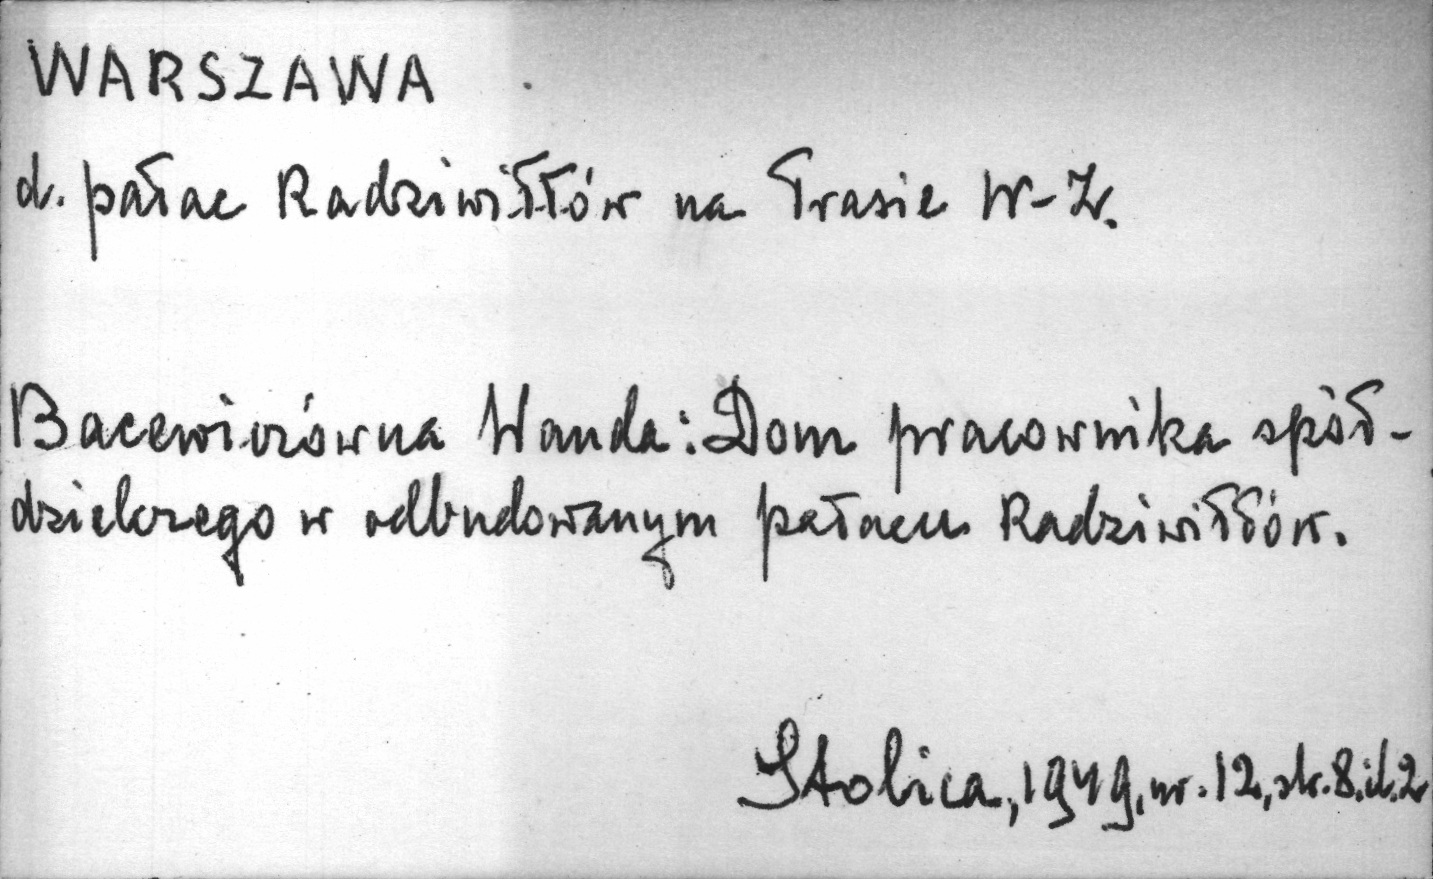 WARSZAWA
d. pałac Radziwiłłów na Trasie W-Z.
Bacewiczówna Wanda: Dom pracownika spół-
dzielczego w odbudowanym pałacu Radziwiłłów.
Stolica, 1949, nr. 12, str. 8, il. 2